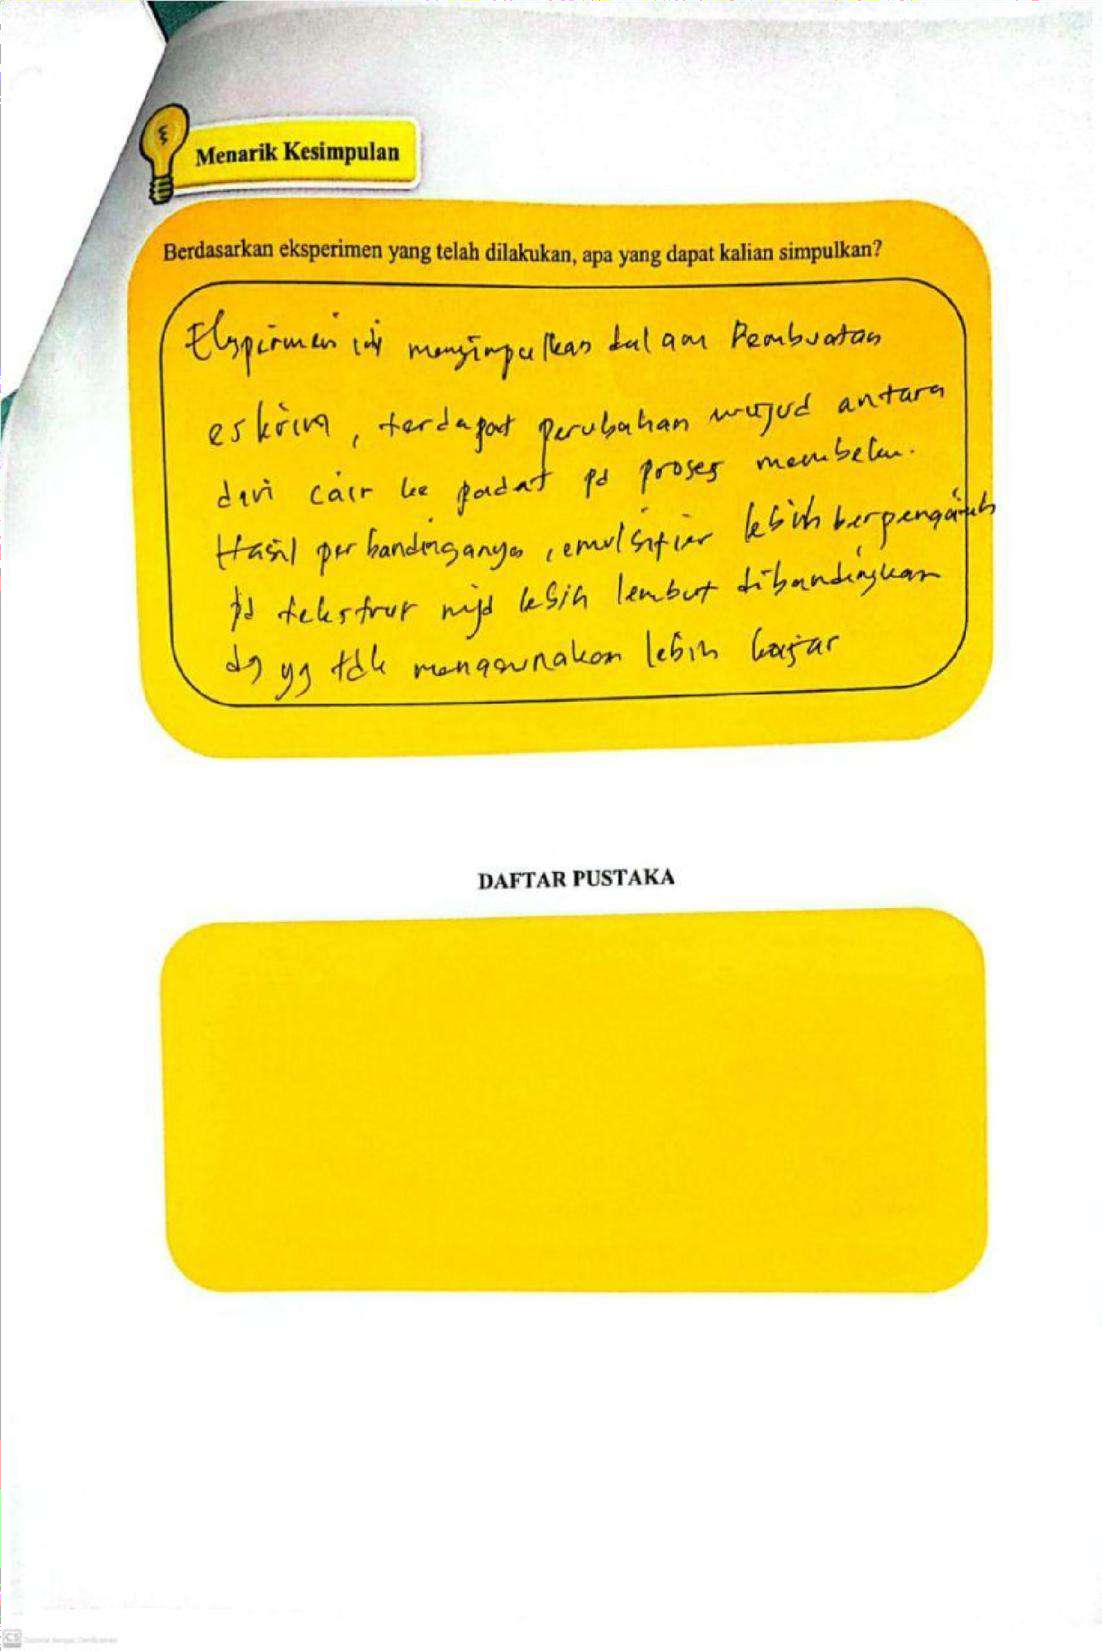 Menarik Kesimpulan
Berdasarkan eksperimen yang telah dilakukan, apa yang dapat kalian simpulkan?
Ekspirmen ini menyimpulkan dalam Pembuatan
eskrim, terdapat perubahan wujud antara
dari cair ke padat pd proses membeku.
Hasil perbandinganya, emulsifier lebih berpengaruh
pd tekstrur mjd lebih lembut dibandingkan
dg yg tdk menggunakan lebih kasar
DAFTAR PUSTAKA
CS